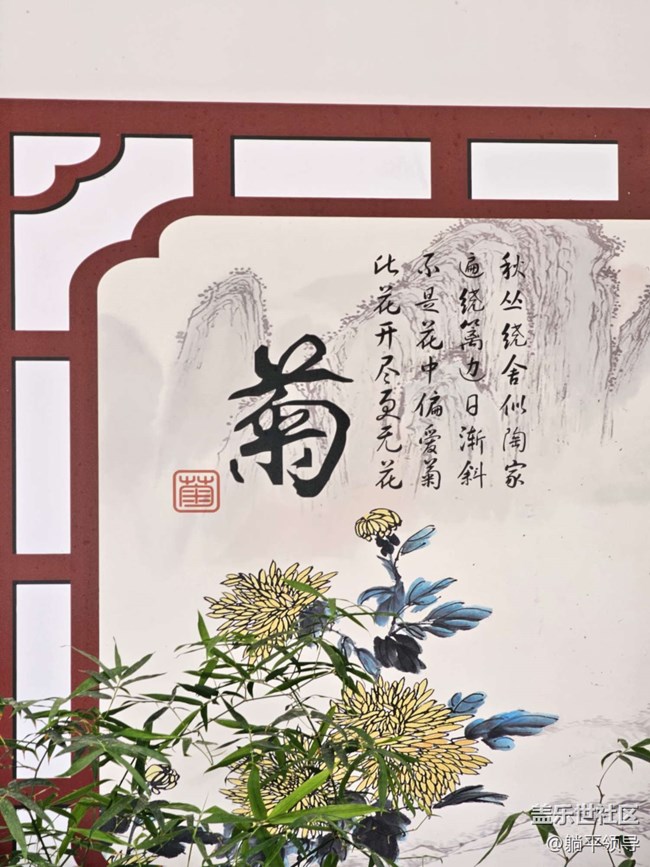 秋丛绕舍似陶家
遍绕篱边日渐斜
不是花中偏爱菊
此花开尽更无花
菊
菊
盖乐世社区
@躺平领导